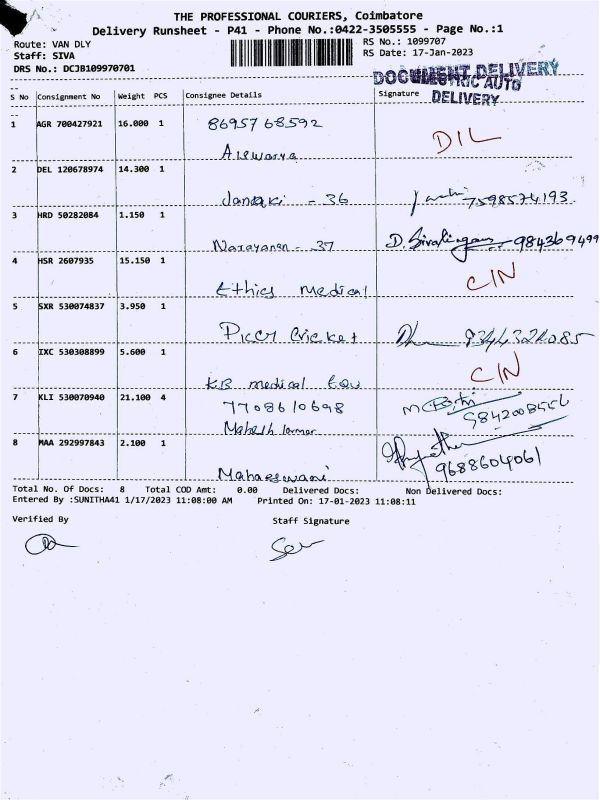 THE PROFESSIONAL COURIERS, Coimbatore
Delivery Runsheet - P41 - Phone No.:0422-3505555 - Page No.:1
Route: VAN DLY
RS No.: 1099707
Staff: SIVA
RS Date: 17-Jan-2023
DRS No.: DCJB109970701
DOCUMENT DELIVERY
ELECTRIC AUTO
DELIVERY
S No Consignment No Weight PCS Consignee Details Signature
1 AGR 700427921 16.000 1 8695768592 DIL
Aiswarya
2 DEL 120678974 14.300 1
Janaki - 36 7598574193
3 HRD 50282084 1.150 1
Narayanan - 37 D. Sivalingam 984369499
4 HSR 2607935 15.150 1 CIN
Ethics Medical
5 SXR 530074837 3.950 1
Piccy Cricket 9344324085
6 IXC 530308899 5.600 1 CIN
KB medical Equ
7 KLI 530070940 21.100 4 7708610698 9842008556
Mahesh
8 MAA 292997843 2.100 1 9688604061
Maheswari
Total No. Of Docs: 8 Total COD Amt: 0.00 Delivered Docs: Non Delivered Docs:
Entered By :SUNITHA41 1/17/2023 11:08:00 AM Printed On: 17-01-2023 11:08:11
Verified By Staff Signature